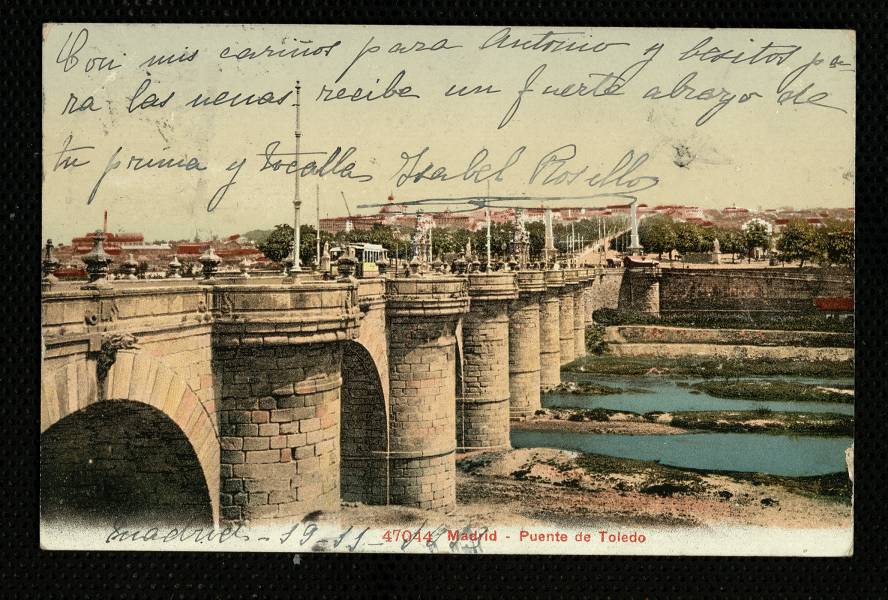 Con mis cariños para Antonio y besitos pa-
ra las nenas recibe un fuerte abrazo de
tu prima y tocalla Isabel Rosillo
Madrid - 19 - 11 -
47044 Madrid - Puente de Toledo